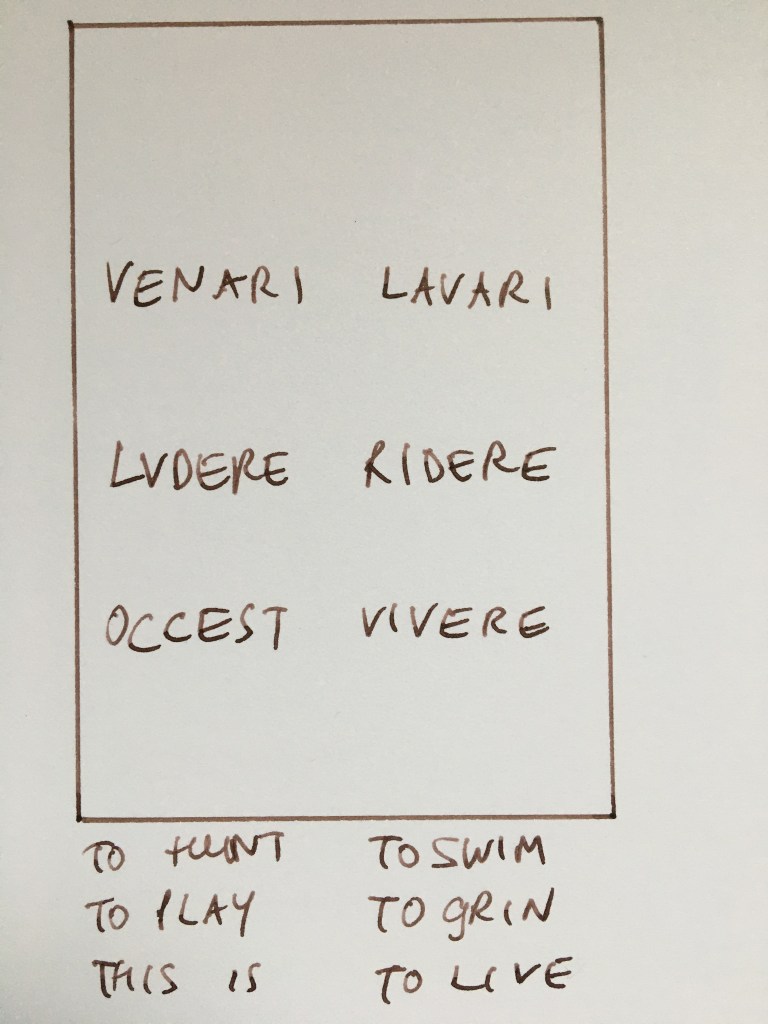 VENARI LAVARI
LVDERE RIDERE
OCCEST VIVERE
TO HUNT TO SWIM
TO PLAY TO GRIN
THIS IS TO LIVE